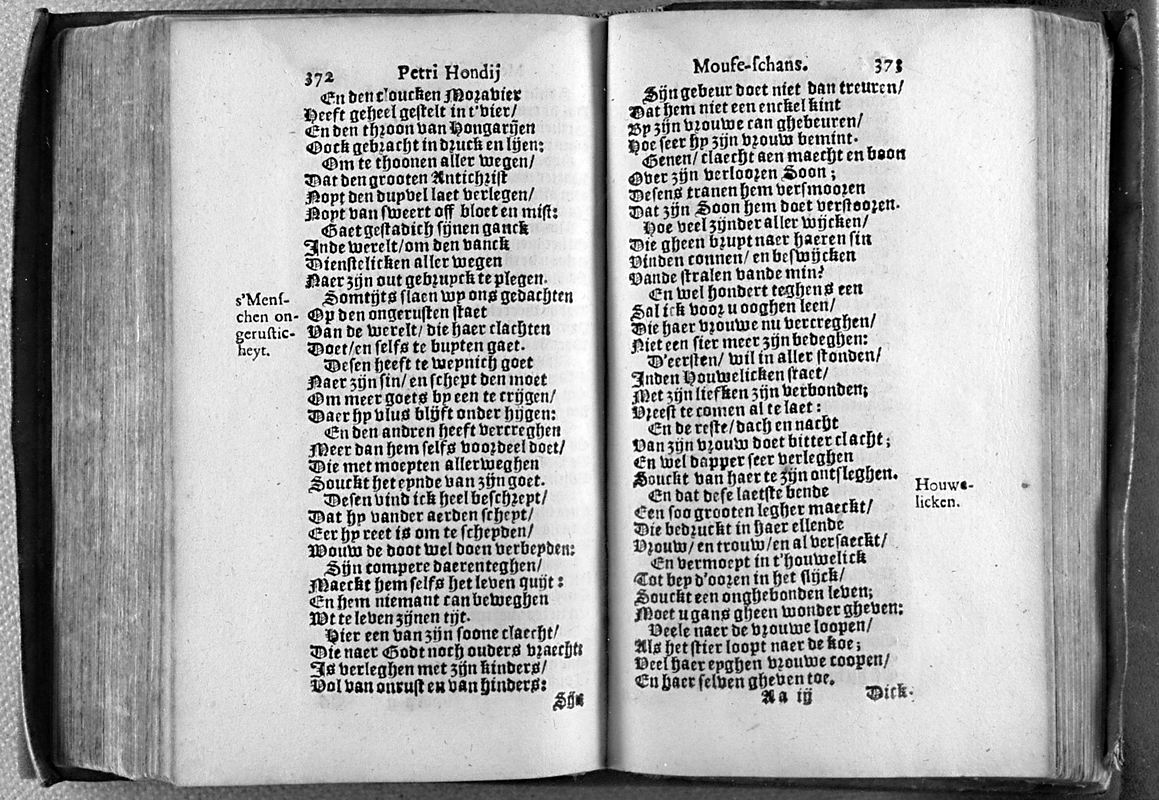 372 Petri Hondij
En den cloucken Moravier
Heeft geheel gestelt in t'vier/
En den throon van Hongarijen
Oock gebracht in druck en lijen;
Om te thoonen aller wegen/
Dat den grooten Antichrist
Noyt den duyvel laet verlegen/
Noyt van sweert off bloet en mist:
Gaet gestadich sijnen ganck
Inde werelt/om den vanck
Dienstelicken aller wegen
Naer zijn out gebruyck te plegen.
s'Menschen ongerusticheyt.
Somtijts slaen wy ons gedachten
Op den ongerusten staet
Van de werelt/ die haer clachten
Doet/en selfs te buyten gaet.
Desen heeft te weynich goet
Naer zijn sin/ en schept den moet
Om meer goets by een te crijgen/
Daer hy vlus blijft onder hijgen:
En den andren heeft vercreghen
Meer dan hem selfs voordeel doet/
Die met moeyten allerweghen
Souckt het eynde van zijn goet.
Desen vind ick heel beschreyt/
Dat hy vander aerden scheyt/
Eer hy reet is om te scheyden/
Wouw de doot wel doen verbeyden:
Sijn compere daerenteghen/
Maeckt hem selfs het leven quijt:
En hem niemant can beweghen
Wt te leven zijnen tijt.
Hier een van zijn soone claecht/
Die naer Godt noch ouders vraecht:
Is verleghen met zijn kinders/
Vol van onrust en van hinders:
Sijn
Mouse-schans. 373
Sijn gebeur doet niet dan treuren/
Dat hem niet een enckel kint
By zijn vrouwe can ghebeuren/
Hoe seer hy zijn vrouw bemint.
Genen/ claecht aen maecht en boon
Over zijn verlooren Soon;
Desens tranen hem versmooren
Dat zijn Soon hem doet verstooren.
Hoe veel zijnder aller wijcken/
Die gheen bruyt naer haeren sin
Vinden connen/ en beswijcken
Vande stralen vande min?
En wel hondert teghens een
Sal ick voor u ooghen leen/
Die haer vrouwe nu vercreghen/
Niet een sier meer zijn bedeghen:
D'eersten/ wil in aller stonden/
Inden Houwelicken staet/
Met zijn liefken zijn verbonden;
Vreest te comen al te laet:
En de reste/ dach en nacht
Van zijn vrouw doet bitter clacht;
En wel dapper seer verleghen
Souckt van haer te zijn ontsleghen.
Houwelicken.
En dat dese laetste bende
Een soo grooten legher maeckt/
Die bedruckt in haer ellende
Vrouw/ en trouw/en al versaeckt/
En vermoeyt in t'houwelick
Tot bey d'ooren in het slijck/
Souckt een onghebonden leven;
Moet u gans gheen wonder gheven:
Veele naer de vrouwe loopen/
Als het stier loopt naer de koe;
Veel haer eyghen vrouwe coopen/
En haer selven gheven toe.
Aa ij Dick-